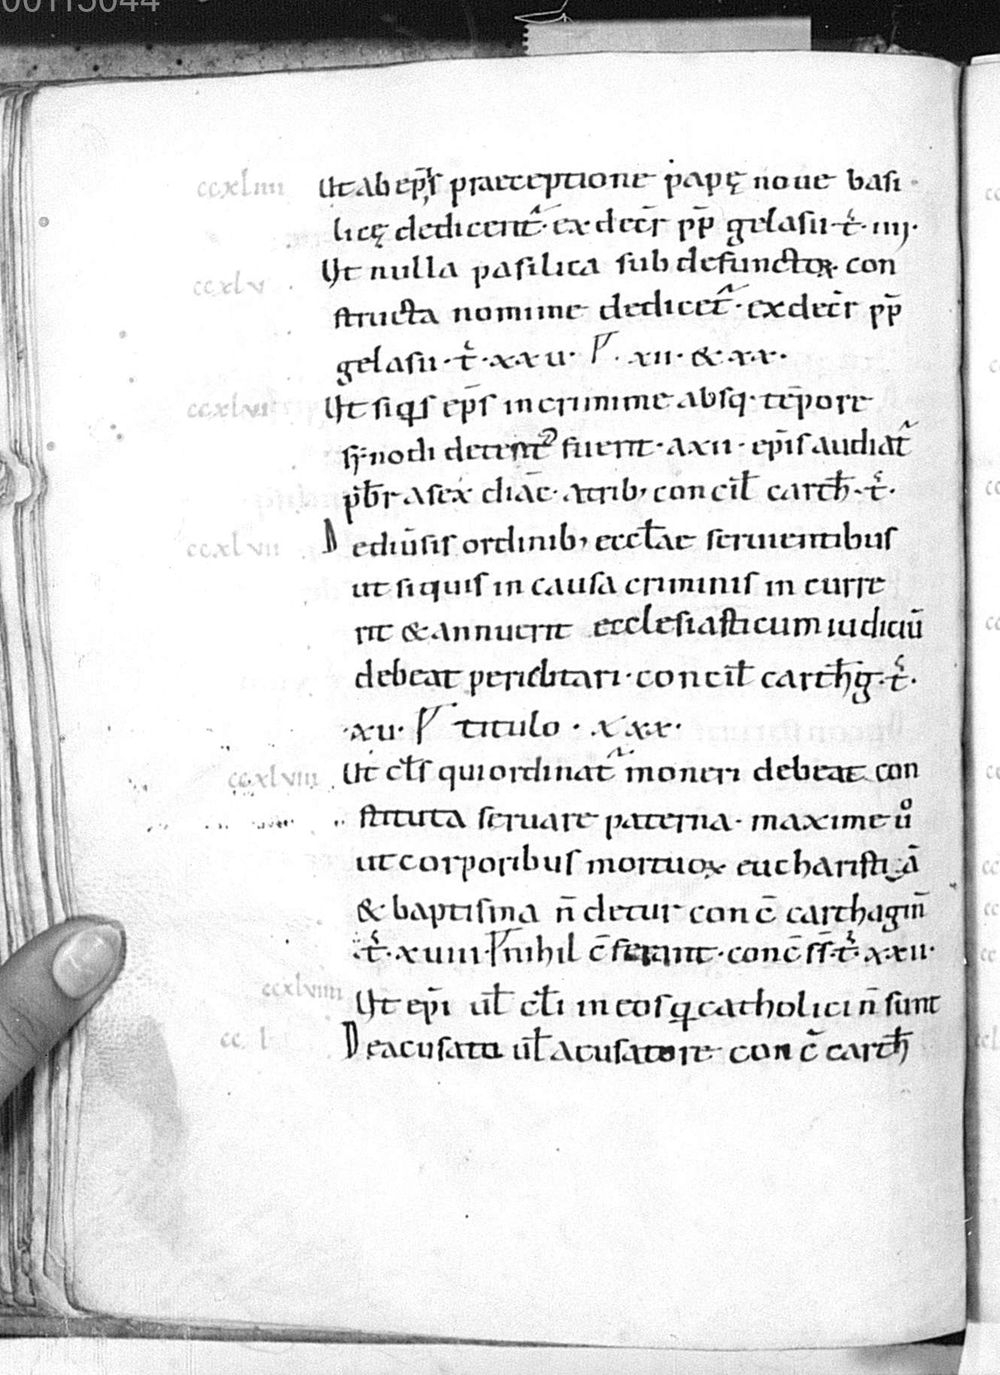 00115044
ccxliiii Ut ab ep̄s praeceptione papę noue basi
licę dedicent̄ · ex decr̄ pp̄ gelasii · t̄ · iiij ·
ccxlv Ut nulla pasilica sub defunctoꝝ · con
structa nomine dedicet̄ · ex decr̄ pp̄
gelasii · t̄ · xxu · P · xii · & xx ·
ccxlvi Ut siq̇s ep̄s in crimine absq · tēpore
synodi detent᾿ fuerit · a xii · ep̄is audiat̄
pb̄r a sex diac̄ · a trib; concil̄ carth̄ · t̄ ·
ccxlvii De diūsis ordinib; eccl̄ae seruientibus
ut si quis in causa criminis in curre
rit & annuerit ecclesiasticum iudiciū
debeat periclitari · concil̄ carth̄g · t̄ ·
· xu · P titulo · xxx ·
ccxlviii Ut cl̄s qui ordinat̄ moneri debeat con
stituta seruare paterna · maxime uº
ut corporibus mortuoꝝ eucharistiā
& baptisma n̄ detur con c̄ carthagin̄
· t̄ · xuiii · P nihil c̄ ferant · conc̄ ss̄ · t̄ · xxii ·
ccxlviiii Ut ep̄i ul̄ cl̄i in eos q catholici n̄ sunt
cc l De acusato ul̄ acusatore con c̄ carth̄